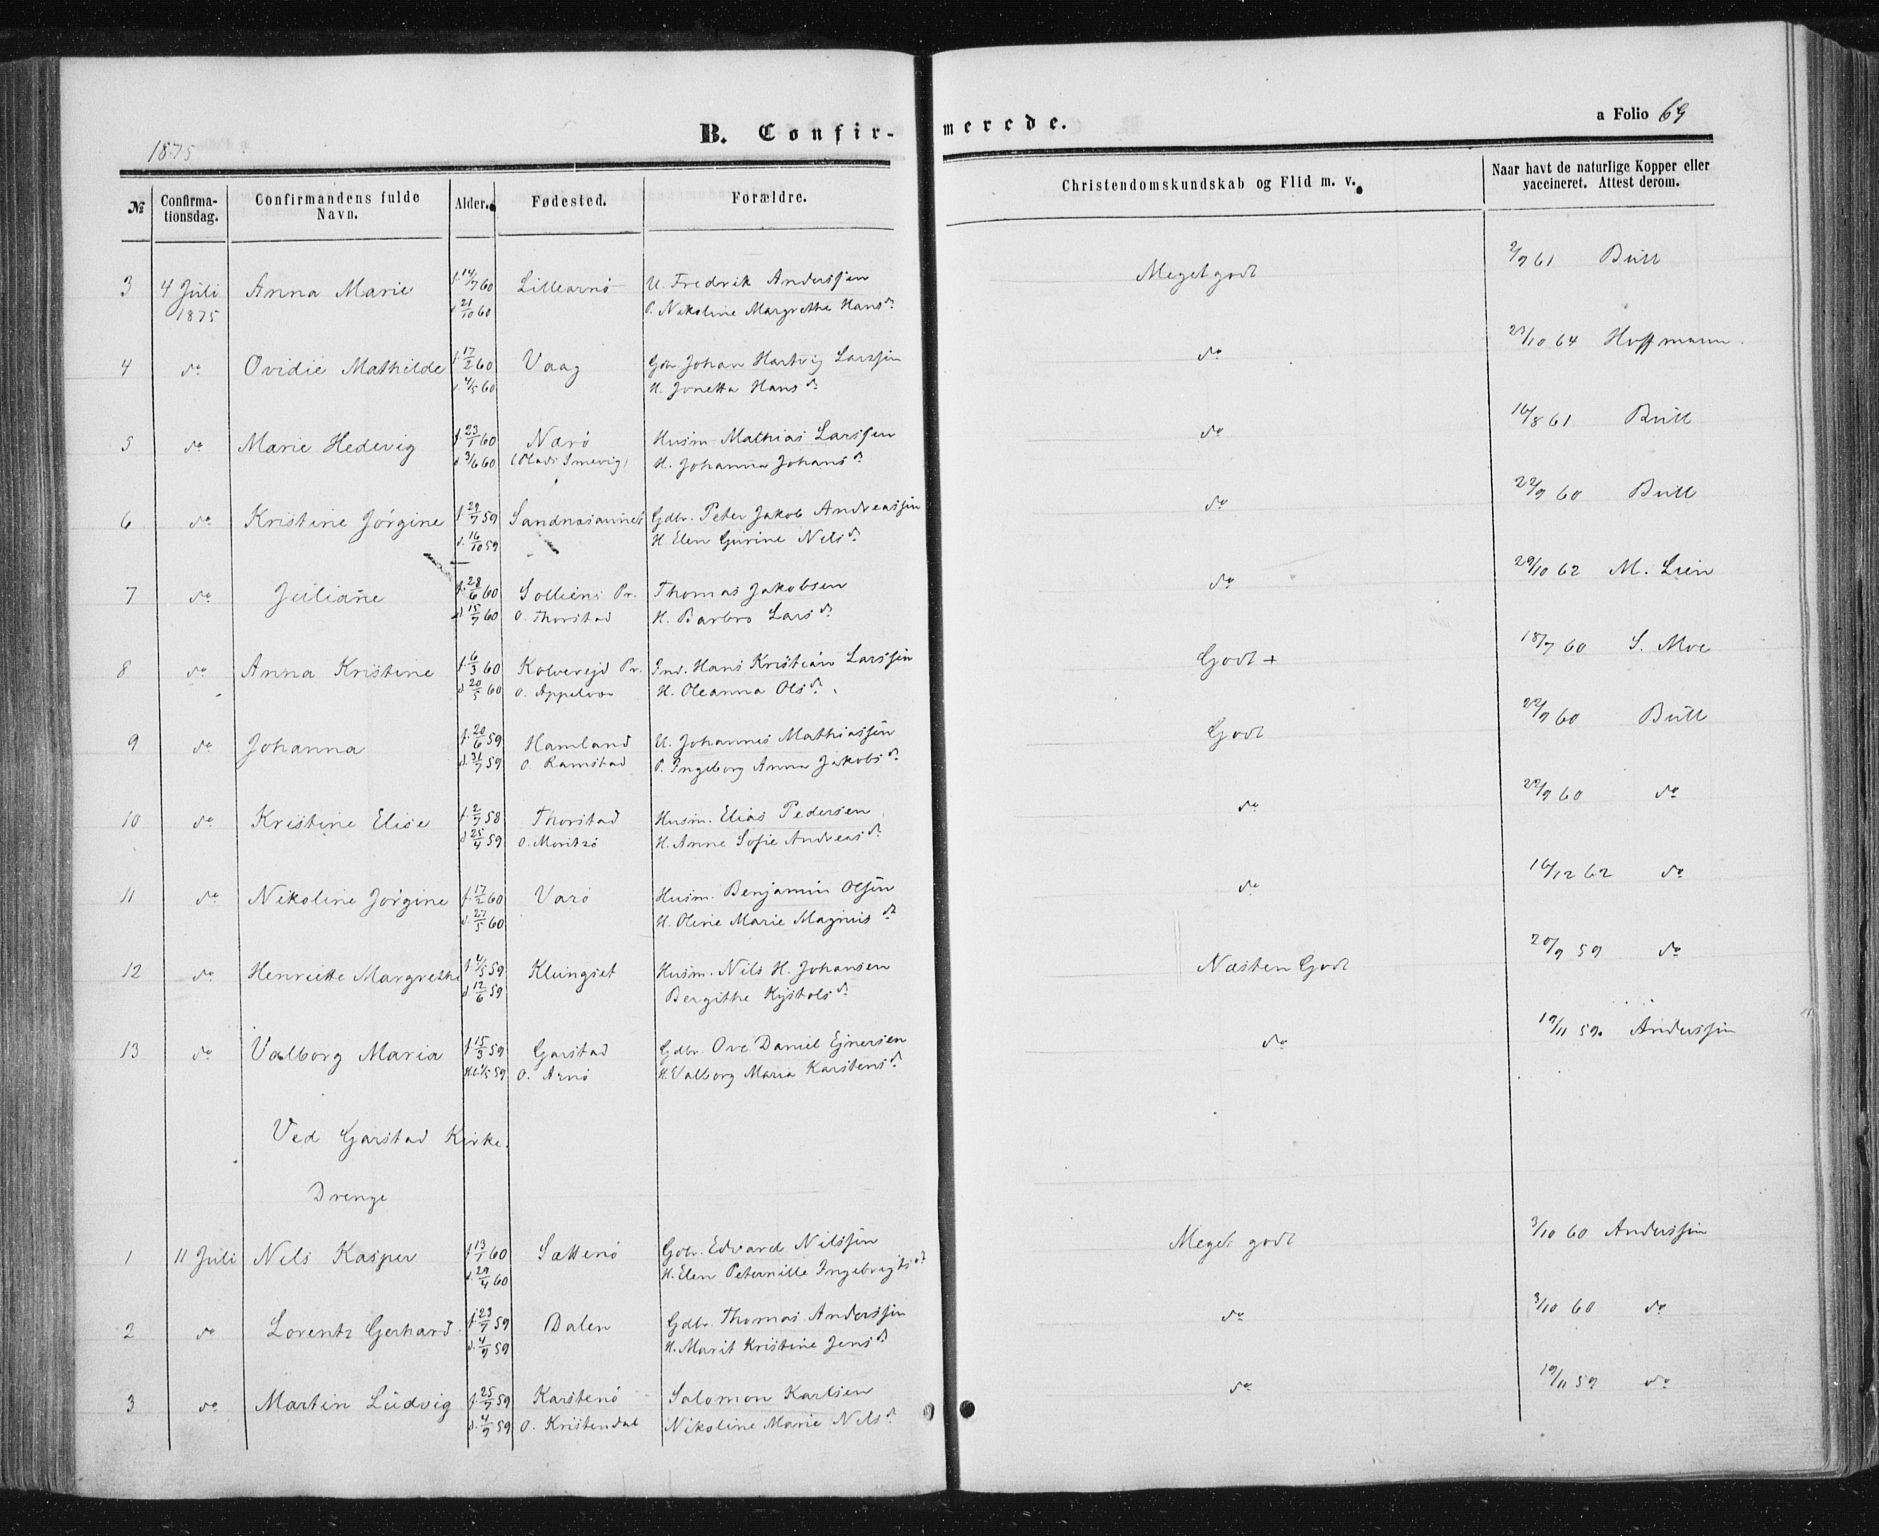 1875
B. Confirmerede.
a Folio 69
№ Confirmationsdag. Confirmandens fulde Navn. Alder. Fødested. Forældre. Christendomskundskab og Flid m. v. Naar havt de naturlige Kopper eller vaccineret. Attest derom.
3 4 Juli Anna Marie f. 14/7 60 Lillearnø U. Fredrik Anderssen Meget godt 2/9 61 Bull
1875 d 21/10 60 P. Nikoline Margrethe Hansd.
4 do Ovidie Mathilde f. 17/2 60 Vaag Gbr Johan Hartvig Larssen do 23/10 64 Hoffmann.
d. 4/5 60 H. Jonetta Hansd.
5 do Marie Hedevig f. 23/1 60 Nærø Husm. Mathias Larssen do 16/8 61 Bull
d 3/6 60 H. Johanna Johansd.
6 do Kristine Jørgine f. 29/7 59 Gdbr. Peter Jakob Andreassen do 22/9 60 Bull
d. 16/10 59 H. Elen Gurine Nelsd.
7 do Juliane f. 28/6 60 Solliens Pr. Thomas Jakobsen do 29/10 62 M. Lien
d 15/7 60 O. Thorstad H. Barbro Larsd.
8 do Anna Kristine f. 6/3 60 Kolvereid Pr. Ind. Hans Kristian Larssen Godt + 18/7 60 S. Moe
d 20/5 60 O. Appelvær H. Oleanna Olsd.
9 do Johanna f. 20/6 59 Hamland U. Johannes Mathiassen Godt 22/9 60 Bull
d. 31/7 59 O. Ramstad P. Ingeborg Anna Jakobsd.
10 do Kristine Elise f. 2/7 58 Thorstad Husm. Elias Pedersen do 22/9 60 do
d 25/4 59 O. Moritzø H. Anne Sofie Andreasd.
11 do Nikoline Jørgine f. 17/2 60 Varø Husm. Benjamin Olsen do 16/12 62 do
d. 27/5 60 H. Oline Marie Magnusd.
12 do Henriette Margrethe f 4/5 59 Klungset Husm. Nils H. Johansen Næsten Godt 20/9 59 do
d 12/6 59 Bergithe
13 do Valborg Maria f 15/3 59 Garstad Gdbr. Ove Daniel Ejnersen do 19/11 59. Anderssen
O. Arnø H. Valborg Maria Karstensd.
Ved Garstad Kirke.
Drenge
1 11 Juli Nels Kasper f 13/1 60 Sættenø Gdbr. Edvard Nilssen Meget godt 3/10 60 Anderssen
d. 29/4 60 H. Elen Peternille Ingebrigtsd.
2 do Lorentz Gerhard f 23/7 59 Dalen Gdbr. Thomas Anderssen do 3/10 60 do
d. 4/9 59 H. Marit Kristine Jensd.
3 do Martin Ludvig f. 25/7 59 Karstenø Salomon Karlsen do 19/11 59 do
d. 4/9 59 O. Kristendal Nikoline Marie Nelsd.